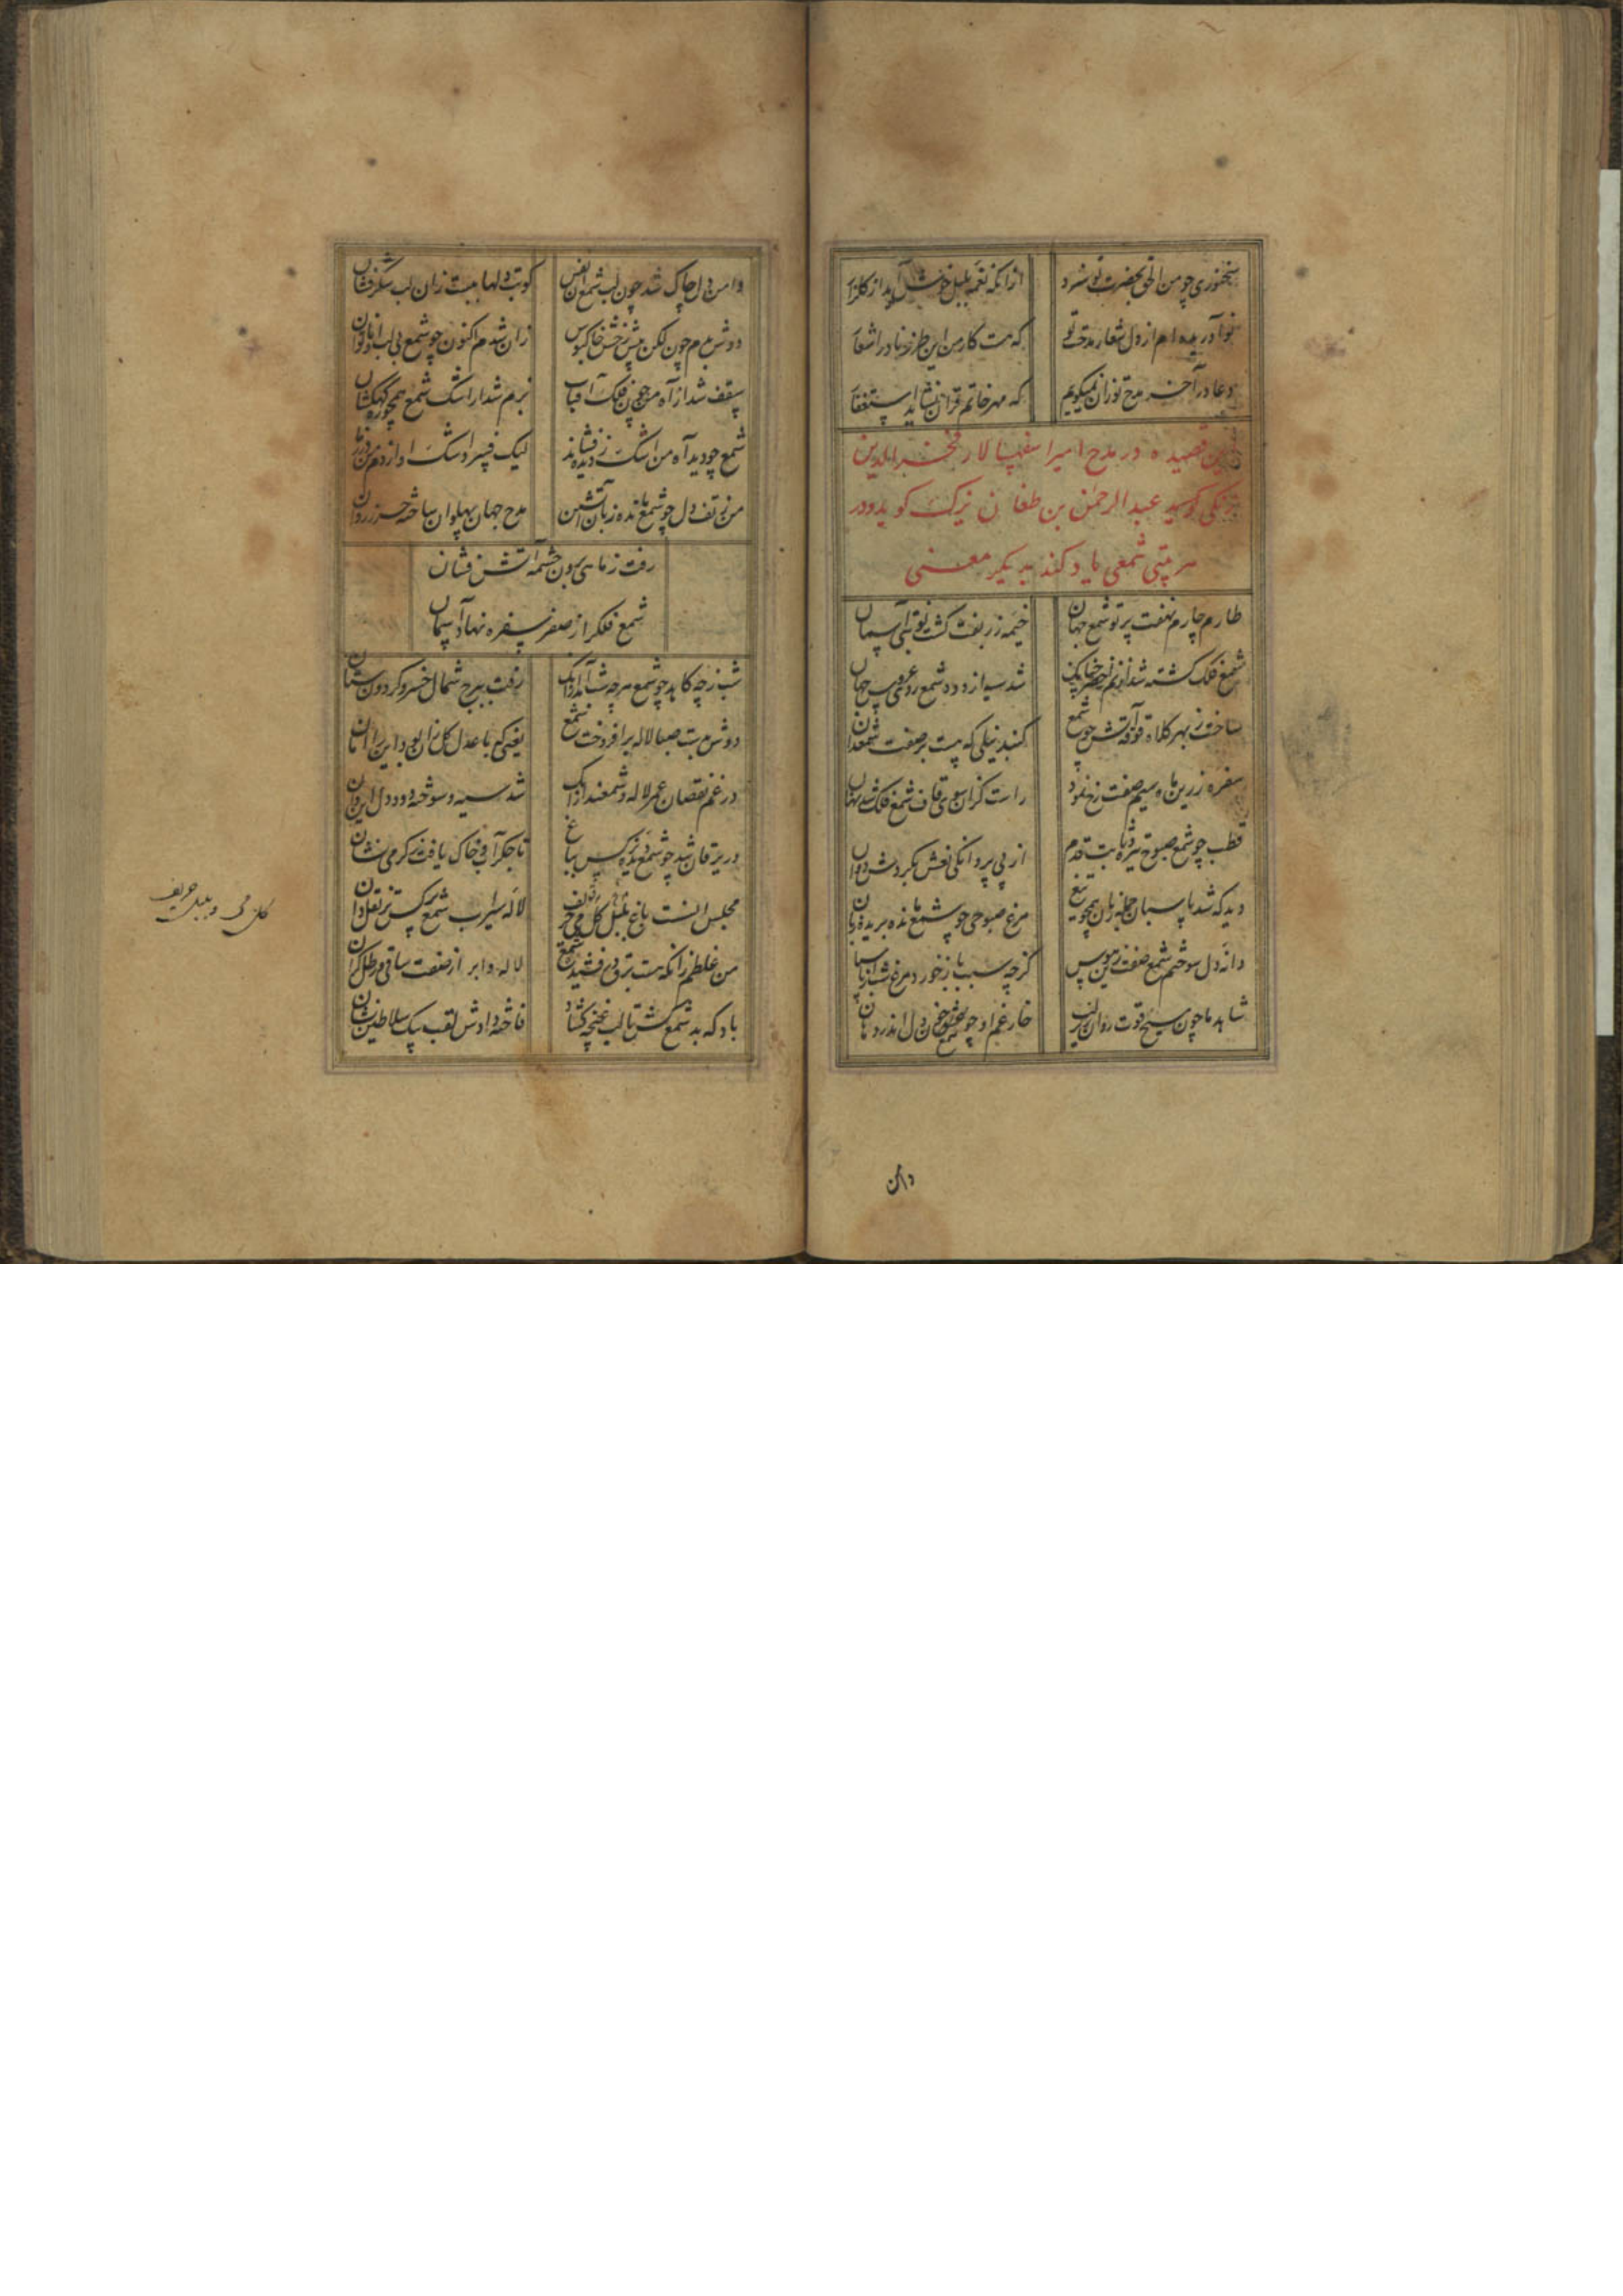 سخنوری چو من الحق بحضرت تو سزد ازانکه نغمه بلبل خوش آید از گلزار
نوا دریده ام از دل شعار مدحت تو که هست کار من این طرز نادر اشعار
دعا در آخر مدح تو زان نمیگویم که مهر خاتم قران نشاید استغفار
این قصیده در مدح امیر اسفهسالار فخر الدین
زنکی کوسید عبد الرحمن بن طغان یزک کوید و در
هر بیتی شمعی یاد کند بدیکر معنی
طارم چارم نهفت پرتو شمع جهان خیمه زربفت گشت نوبتی آسمان
شمع فلک کشته شد شد سیه از دوده شمع روی عروس جهان
ساخت ز بهر کلاه قوقه آتش چو شمع گنبد نیلی که هست بر صفت شمعدان
سفره زرین ماه سیم صفت رخ نمود راست کزان سوی قاف شمع فلک شد نهان
قطب چو شمع صبوح تیره ثابت قدم از پی پروانگی نعش بگردش دوان
دید که شد پاسبان جمله زبان همچو تیغ مرغ صبوحی چو شمع مانده بریده زبان
دانه دل سوختم شمع صفت زین هوس گرچه سبب باز خورد مرغ شب از
شاهد ما چون مسیح قوت روان زیر لب خار غم او چو شمع خون دل اندر دهان
دامن
دامن دل چاک شد چون لب شمع از نفس کوتب دلها ببست زان لب شکرفشان
دوش بدم چون لکن پیش رخش خاکبوس زان شدم اکنون چو شمع بی لب و ناتوان
سقف شد از آه من چون فلک آفتاب بزم شد از اشک شمع همچو ره کهکشان
شمع چو دید آه من اشک ز دیده فشاند لیک فسرد اشک او از دم من در زمان
من ز تف دل چو شمع مانده زبان آتشین مدح جهان پهلوان ساخته حرز روان
رفت ز ماهی برون چشمه آتش فشان
شمع فلک را ز صفر سفره نهاد آسمان
شب ز چه کاهد چو شمع گرچه شب آمد از آنک رفت ببرج شمال خسرو گردون ستان
دوش بت صبا لاله بر افروخت شمع یعنی که با عدل گل زان بود این را امان
در غم نقصان عمر لاله و شمعند از آنک شد سیه و سوخته دود دل این و آن
در یرقان شد چو شمع دیده نرگس بباغ تا جگر آب و خاک یافت ز گرمی نشان
مجلس انست باغ بلبل و گل می حریف لاله سیراب شمع نرگس تر نقلدان
من غلطم زانکه هست لاله و ابر از صفت ساقی و رطل گران
باد که بد شمع کش تا لب غنچه گشاد فاخته دادش لقب پیک سلاطین نشان
گل می و بلبل حریف